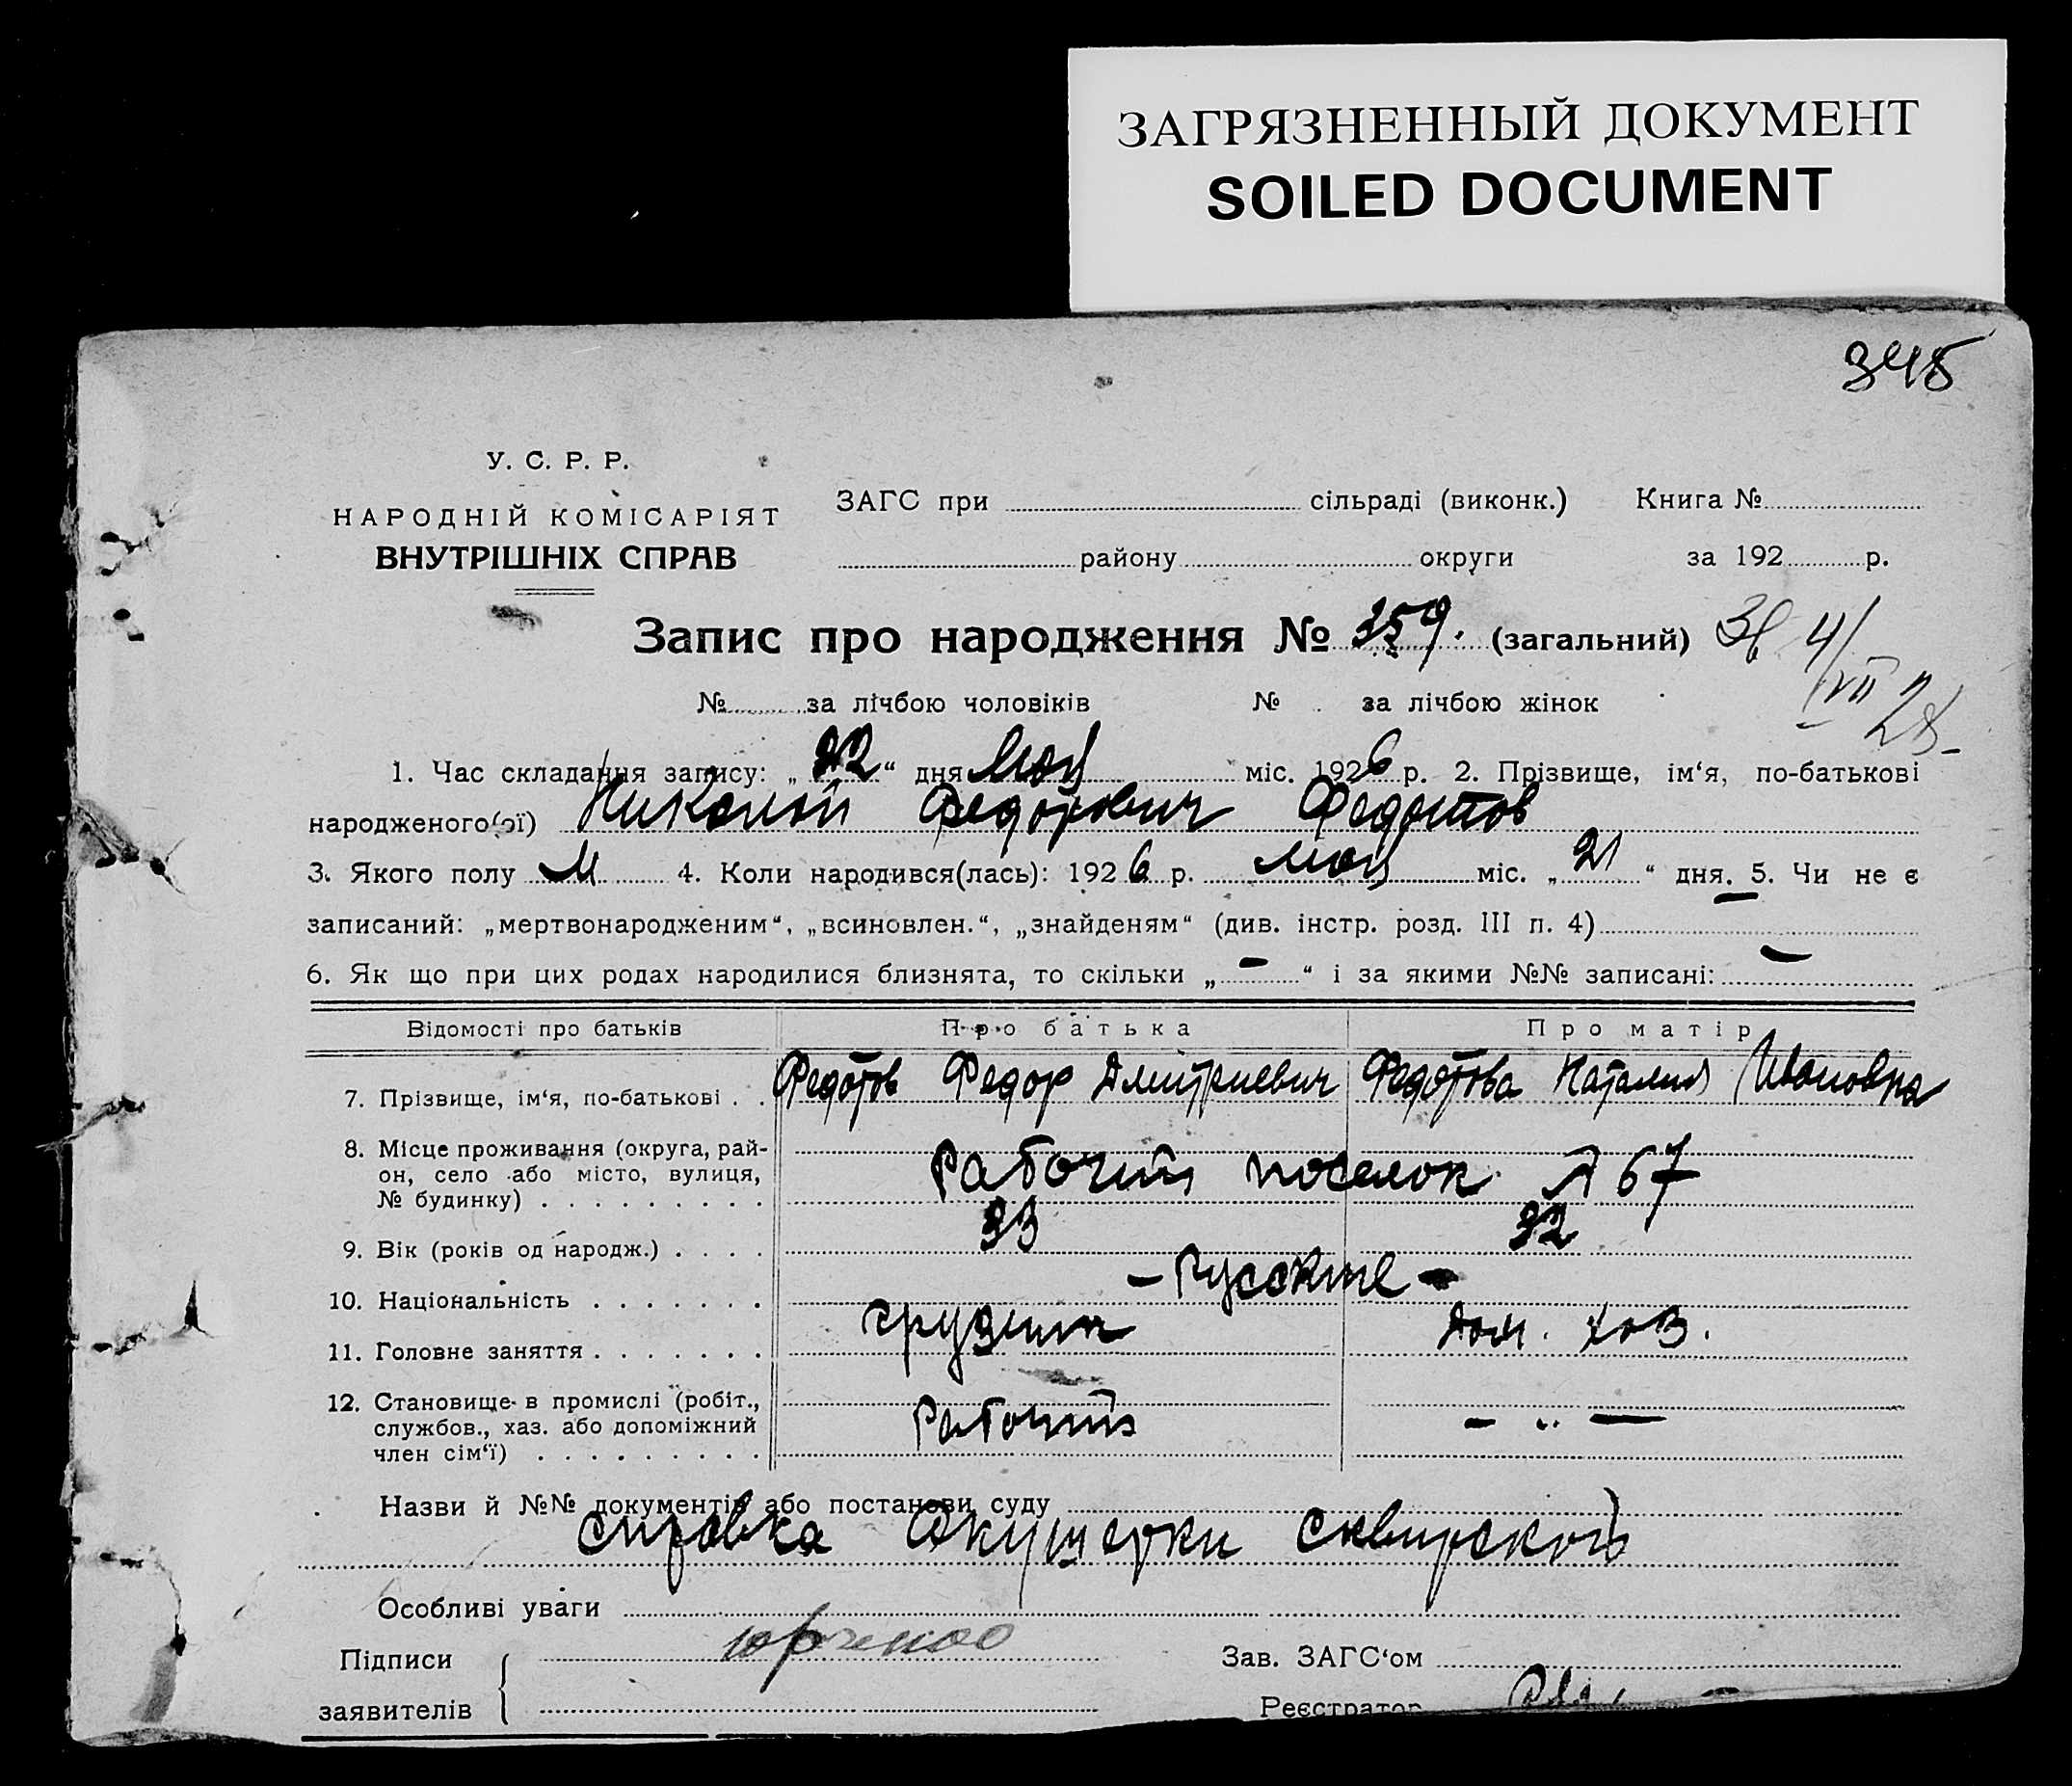 ЗАГРЯЗНЕННЫЙ ДОКУМЕНТ
SOILED DOCUMENT
345
У. С. Р. Р.
НАРОДНІЙ КОМІСАРІЯТ
ВНУТРІШНІХ СПРАВ
ЗАГС при сільраді (виконк.) Книга №
району округи за 192 р.
Запис про народження № 359. (загальний)
4/VII 28
№ за лічбою чоловіків № за лічбою жінок
1. Час складання запису: „22“ дня Мая міс. 1926 р. 2. Прізвище, ім‘я, по-батькові
народженого(ої) Николай Федорович Федотов
3. Якого полу М 4. Коли народився(лась): 1926 р. мая міс. „21“ дня. 5. Чи не є
записаний: „мертвонародженим“, „всиновлен.“, „знайденям“ (див. інстр. розд. III п. 4) —
6. Як що при цих родах народилися близнята, то скільки „—“ і за якими №№ записані: —
Відомості про батьків Про батька Про матір
7. Прізвище, ім‘я, по-батькові . . Федотов Федор Дмитриевич Федотова Наталия Ивановна
8. Місце проживання (округа, рай-
он, село або місто, вулиця, Рабочий поселок 67
№ будинку) . . . . . . . . .
9. Вік (років од народж.) . . . . 33 32
10. Національність . . . . . . . — Русские —
11. Головне заняття . . . . . . . грузчик дом. хоз.
12. Становище в промислі (робіт.,
службов., хаз. або допоміжний Рабочий — „ —
член сім‘ї) . . . . . . . . .
Назви й №№ документів або постанови суду
справка Акушерки Сквирской
Особливі уваги
Підписи Зав. ЗАГС‘ом
заявителів Реєстратор